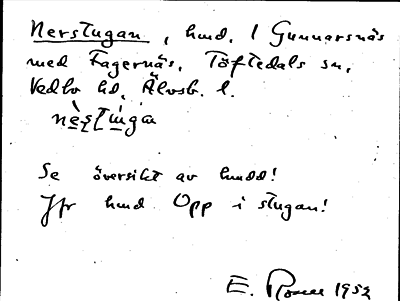 Nerstugan, hmd. 1 Gunnarsnäs
med Fagernäs, Töftedals sn,
Vedbo hd, Älvsb. l.
nèstu̇ga
Se översikt av hmdd!
Jfr hmd Opp i stugan!
E. 1952